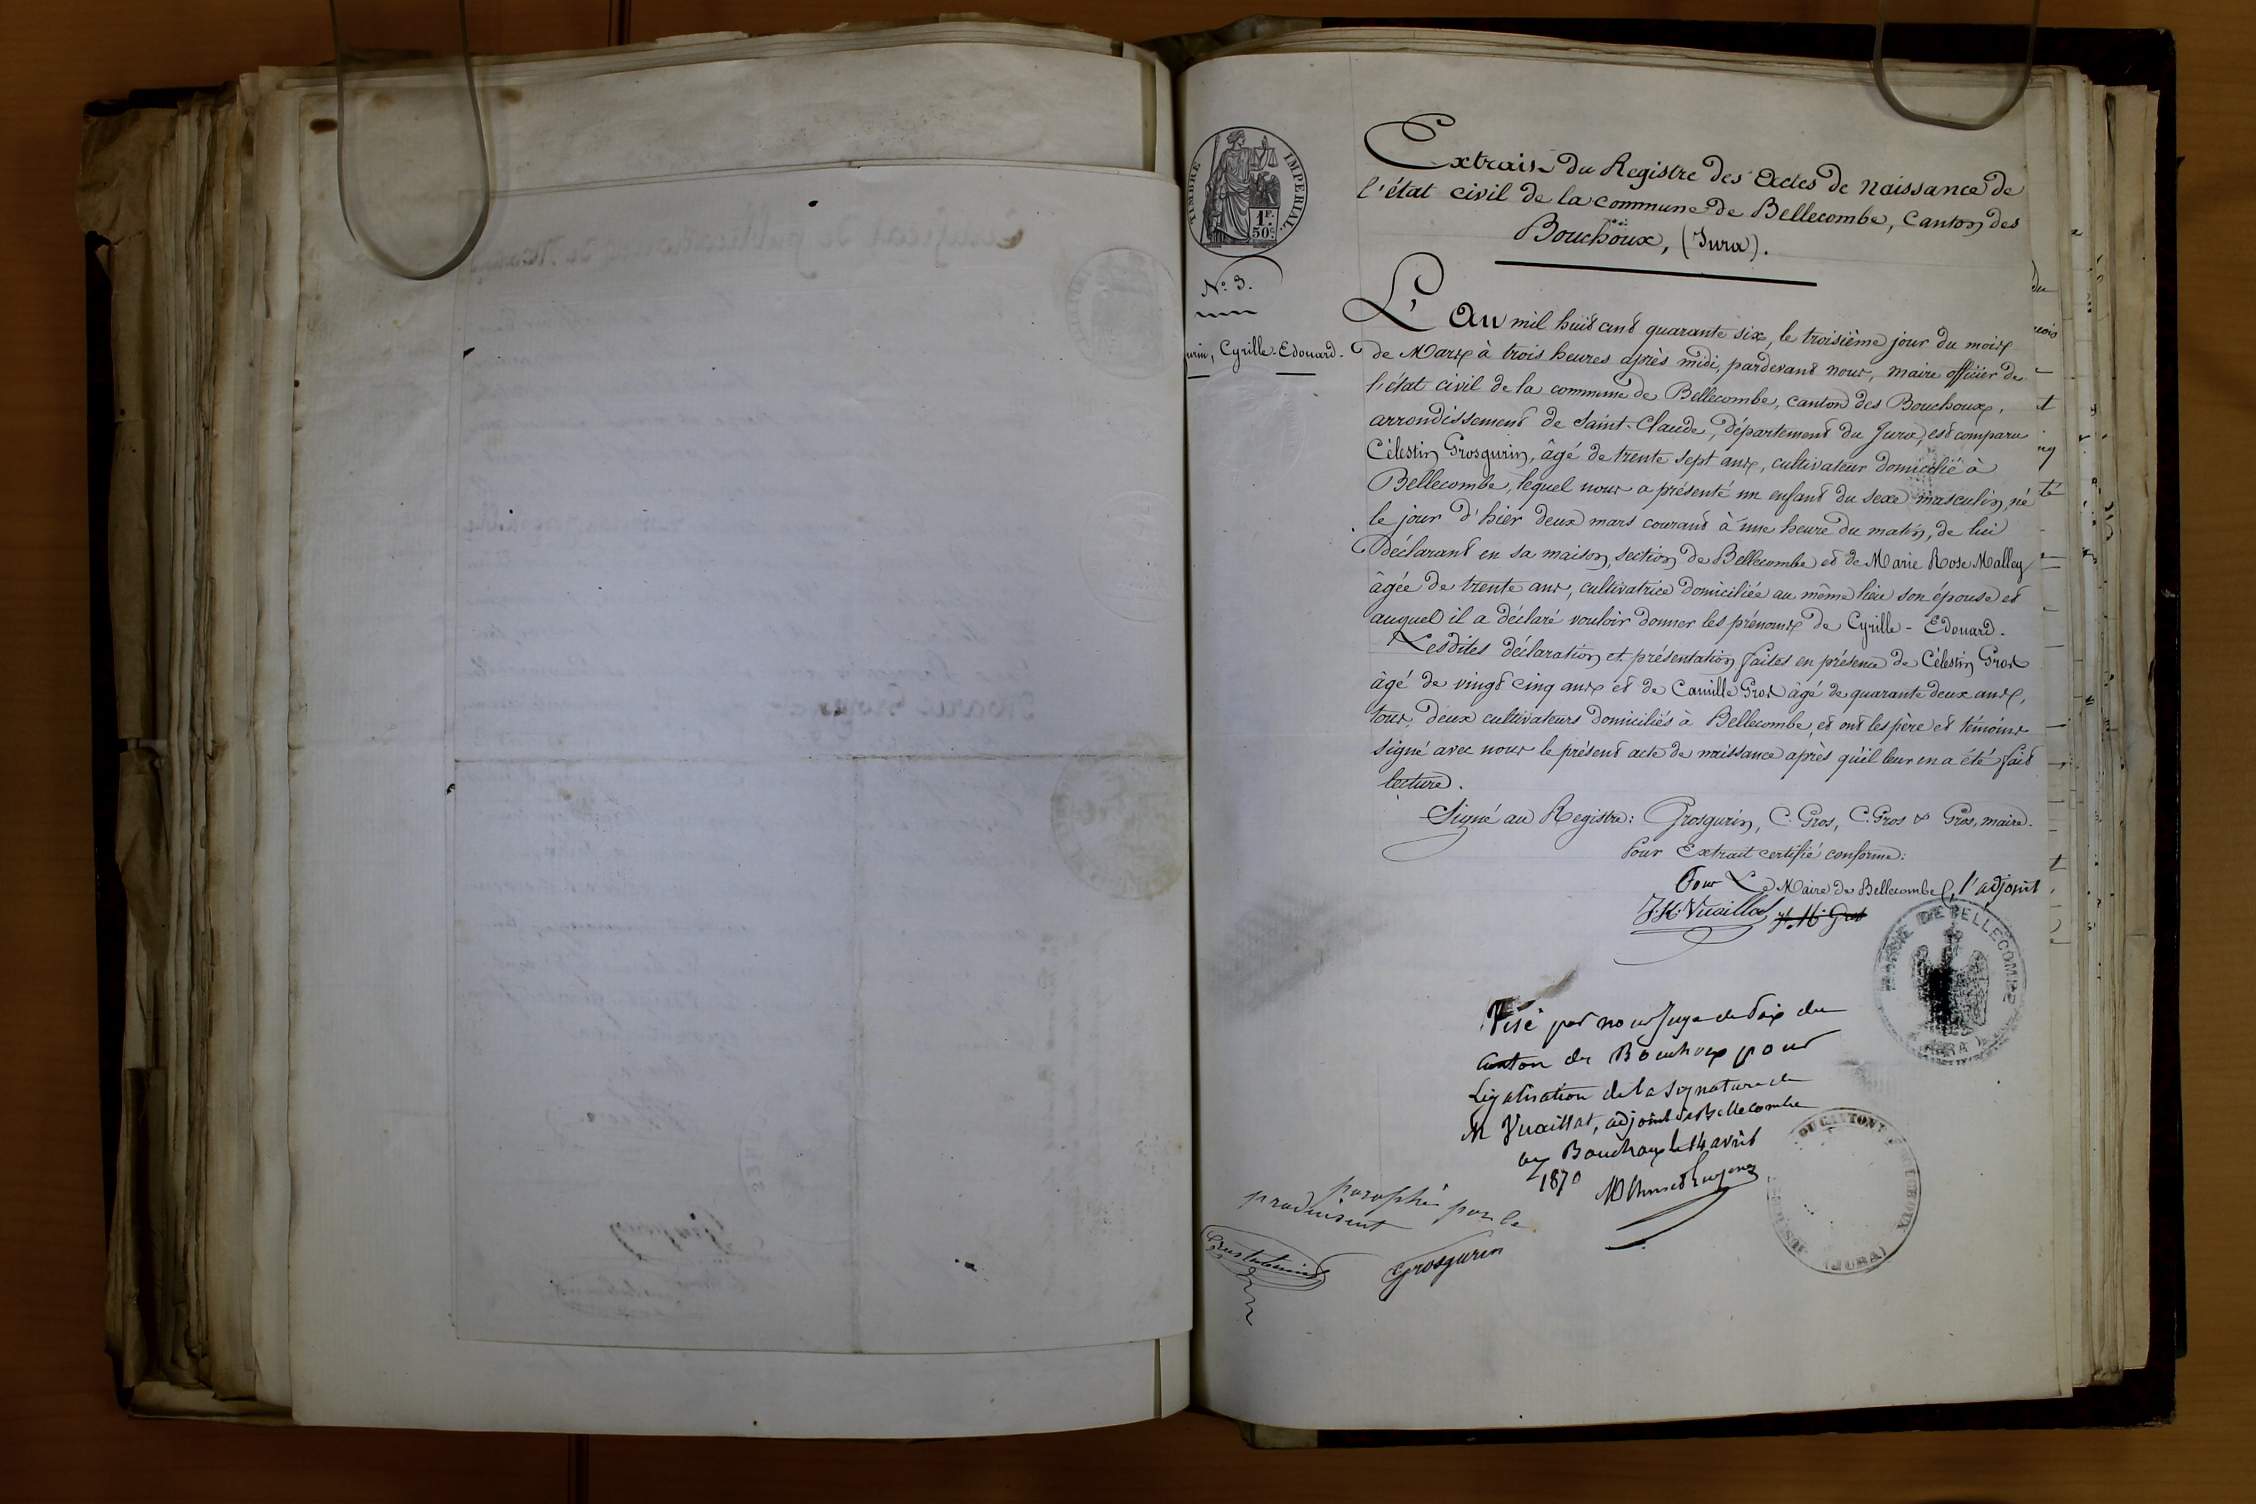 TIMBRE IMPERIAL
1F.
50c.
Extrait du Registre des Actes de naissance de
l'état civil de la commune de Bellecombe, Canton des
Bouchoux, (Jura).
No. 3.
urin, Cyrille-Edouard.
L'an mil huit cent quarante six, le troisième jour du mois
de Mars à trois heures après midi, pardevant nous, maire officier de
l'état civil de la commune de Bellecombe, canton des Bouchoux,
arrondissement de Saint-Claude, département du Jura, est comparu
Célestin Grosgurin, âgé de trente sept ans, cultivateur domicilié à
Bellecombe, lequel nous a présenté un enfant du sexe masculin, né
le jour d'hier deux mars courant à une heure du matin, de lui
déclarant en sa maison, section de Bellecombe et de Marie Rose Malley
âgée de trente ans, cultivatrice domiciliée au même lieu son épouse et
auquel il a déclaré vouloir donner les prénoms de Cyrille-Edouard.
Lesdites déclaration et présentation faites en présence de Célestin Gros
âgé de vingt cinq ans et de Camille Gros âgé de quarante deux ans,
tous deux cultivateurs domiciliés à Bellecombe, et ont les père et témoins
signé avec nous le présent acte de naissance après qu'il leur en a été fait
lecture.
Signé au Registre: Grosgurin, C. Gros, C. Gros & Gros, maire.
Pour Extrait certifié conforme:
Pour Le Maire de Bellecombe, l'adjoint
J. H. Vuaillat J. M. Gros
MAIRIE DE BELLECOMBE
(JURA)
Visé par nous Juge de Paix du
canton des Bouchoux pour
Légalisation de la signature de
M Vuaillat, adjoint de Bellecombe
aux Bouchoux le 14 avril
1870
DU CANTON
(JURA)
paraphé par le
produisant
Grosgurin